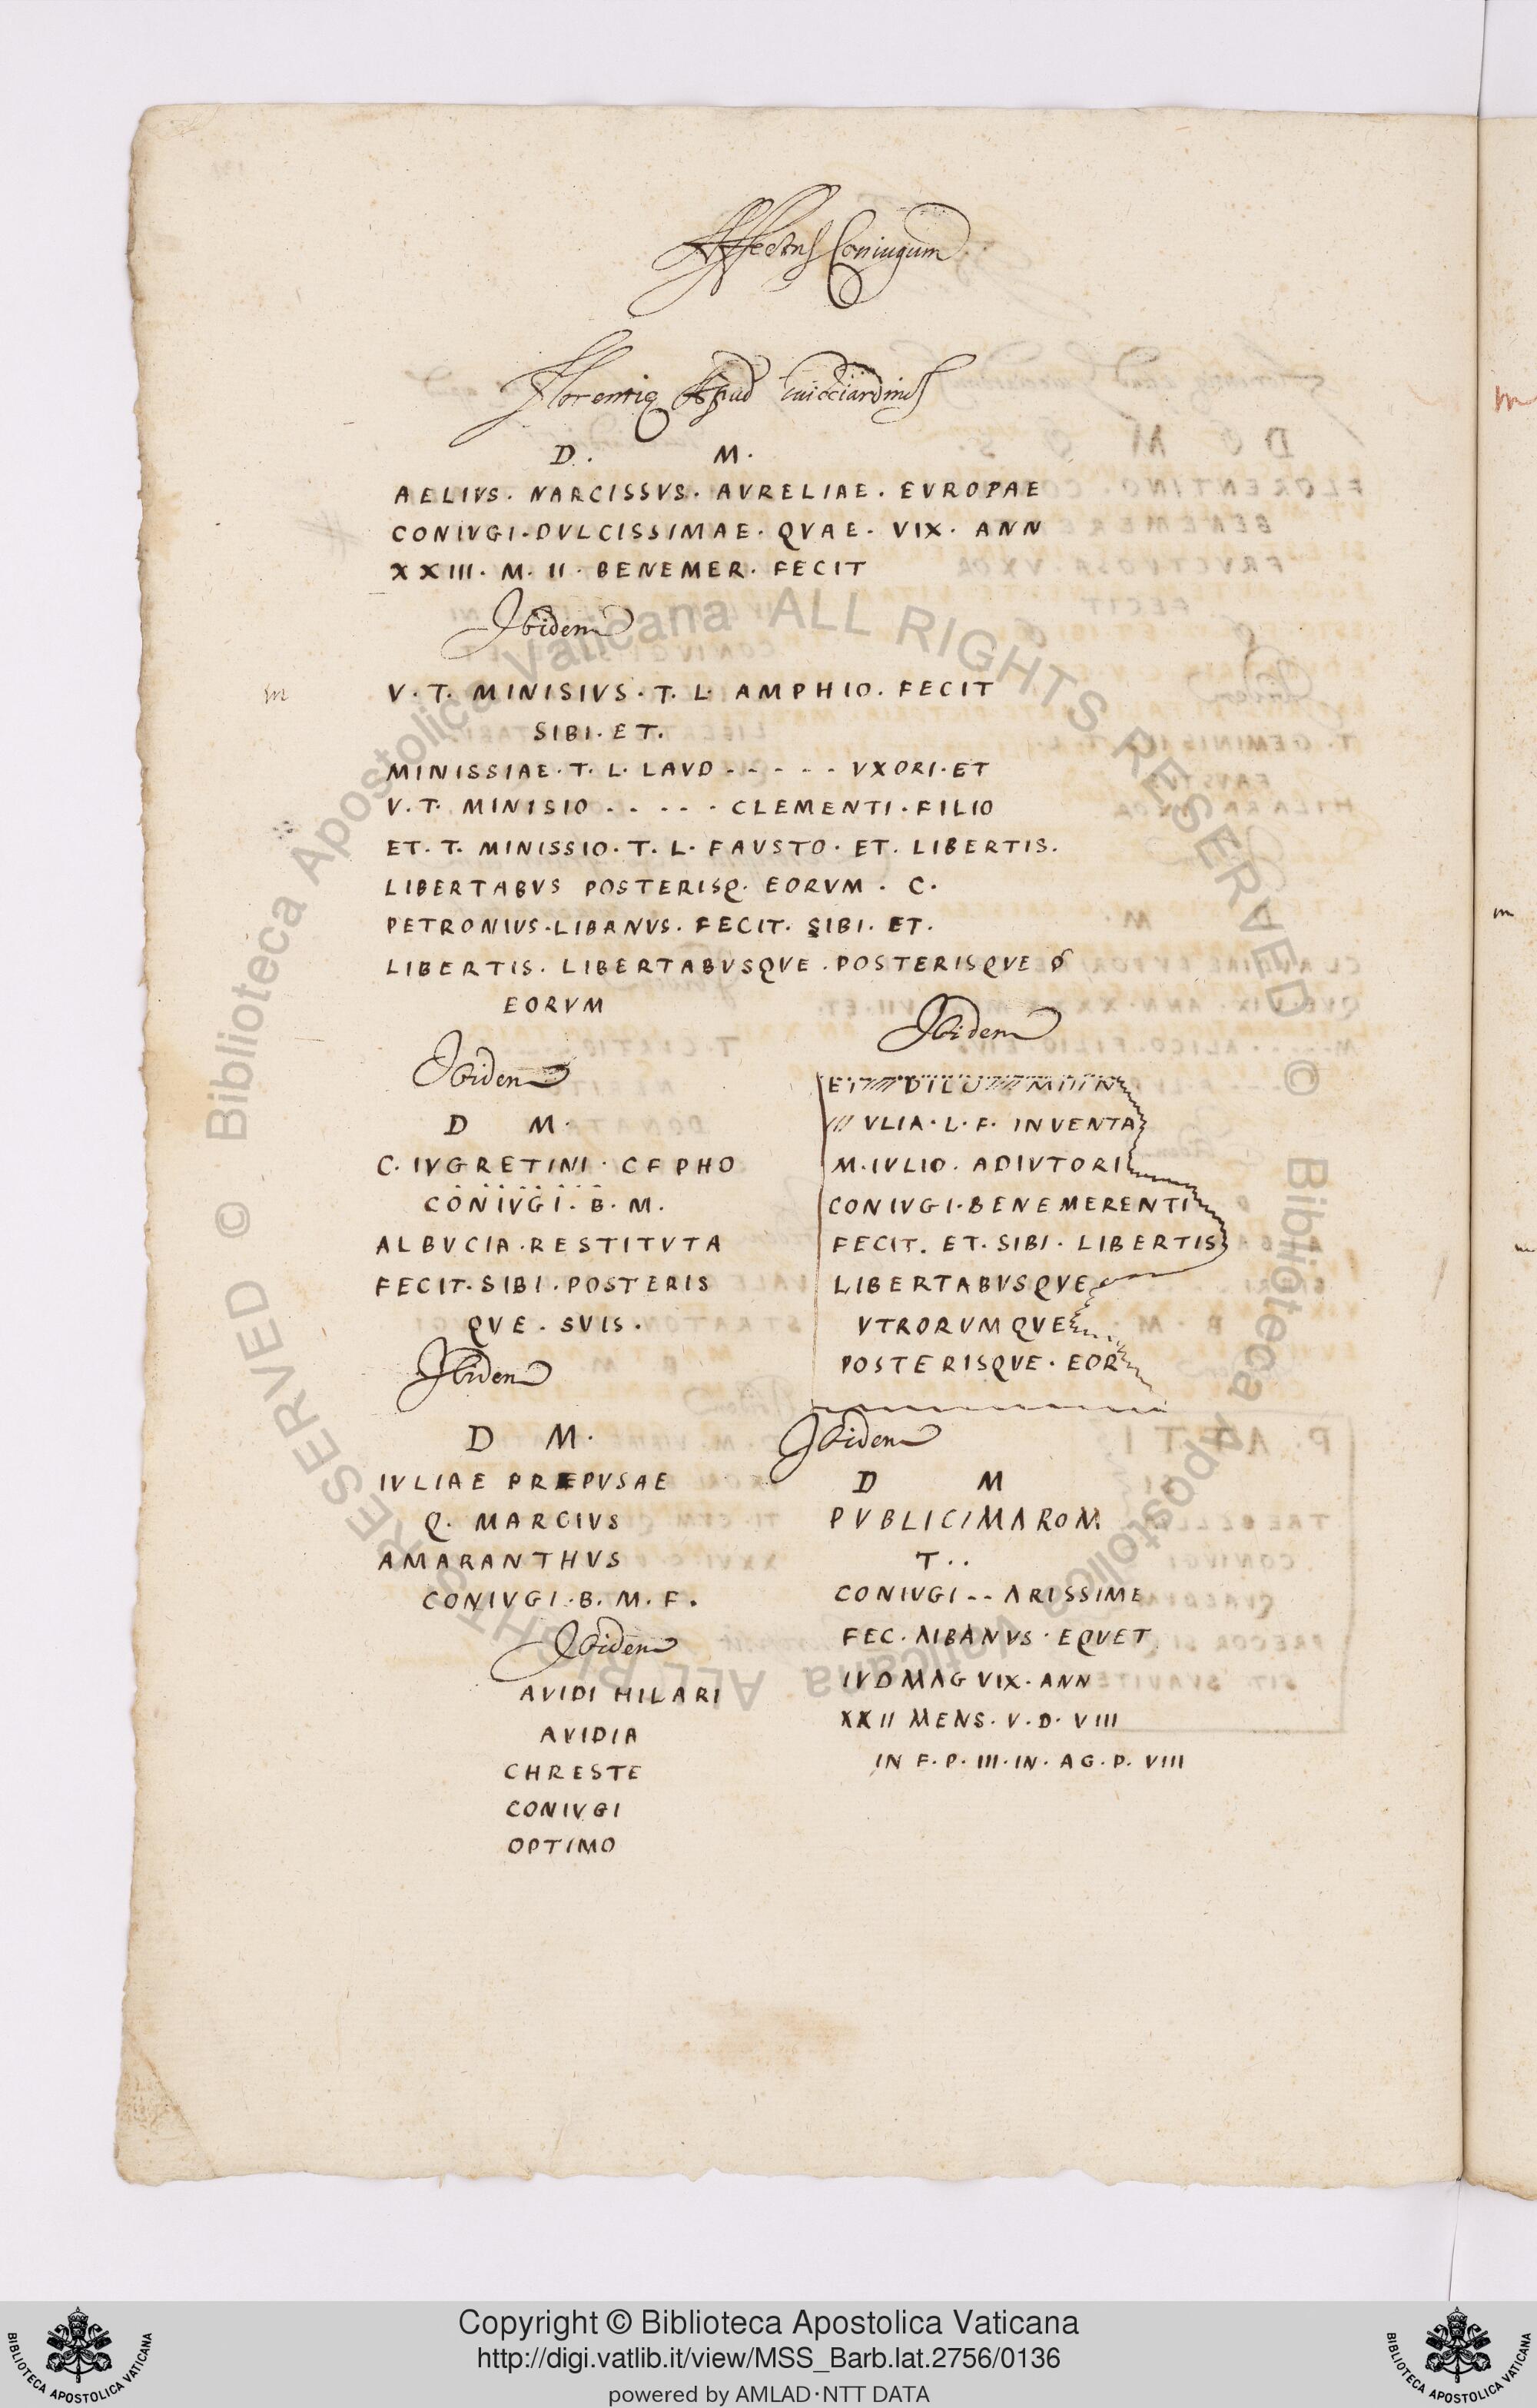 Affectus Coniugum
Florentię Apud Guicciardinos
D. M.
AELIVS. NARCISSVS. AVRELIAE. EVROPAE
CONIVGI. DVLCISSIMAE. QVAE. VIX. ANN
XXIII. M. II. BENEMER. FECIT
Ibidem
m
V. T. MINISIVS. T. L. AMPHIO. FECIT
SIBI. ET.
MINISSIAE. T. L. LAVD - - - - - VXORI. ET
V. T. MINISIO - - - - - CLEMENTI. FILIO
ET. T. MINISSIO. T. L. FAVSTO. ET. LIBERTIS.
LIBERTABVS POSTERISQ. EORVM. C.
PETRONIVS. LIBANVS. FECIT. SIBI. ET.
LIBERTIS. LIBERTABVSQVE. POSTERISQVE
EORVM
Ibidem
D M.
C. IVGRETINI. CFPHO
CONIVGI. B. M.
ALBVCIA. RESTITVTA
FECIT. SIBI. POSTERIS
QVE. SVIS.
Ibidem
D M.
IVLIAE PREPVSAE
Q. MARCIVS
AMARANTHVS
CONIVGI. B. M. F.
Ibidem
AVIDI HILARI
AVIDIA
CHRESTE
CONIVGI
OPTIMO
Ibidem
VLIA. L. F. INVENTA
M. IVLIO. ADIVTORI
CONIVGI. BENEMERENTI
FECIT. ET. SIBI. LIBERTIS
LIBERTABVSQVE
VTRORVMQVE
POSTERISQVE. EOR
Ibidem
D M
PVBLICIMAROM
T..
CONIVGI -- ARISSIME
FEC. AIBANVS. EQVET
IVDMAG VIX. ANN
XXII MENS. V. D. VIII
IN F. P. III. IN. AG. P. VIII
Copyright © Biblioteca Apostolica Vaticana
http://digi.vatlib.it/view/MSS_Barb.lat.2756/0136
powered by AMLAD·NTT DATA
BIBLIOTECA APOSTOLICA VATICANA
BIBLIOTECA APOSTOLICA VATICANA
© Biblioteca Apostolica Vaticana ALL RIGHTS RESERVED
© Biblioteca Apostolica Vaticana ALL RIGHTS RESERVED